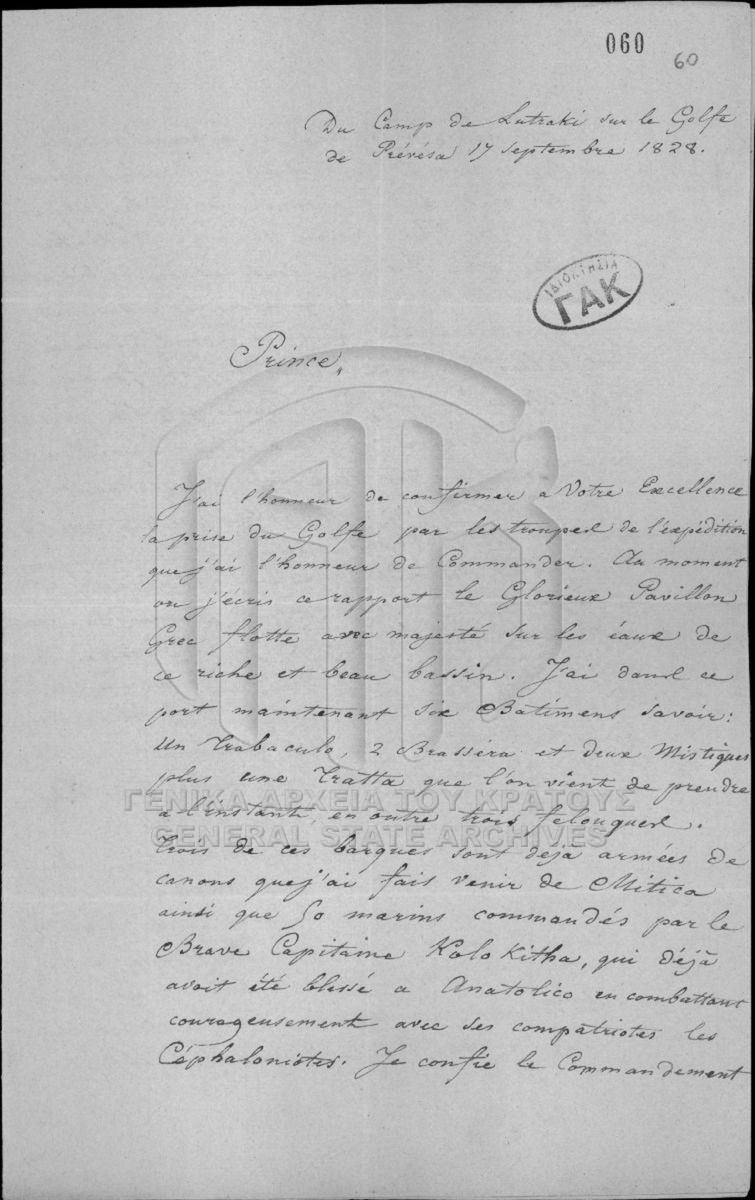 060 60
Du Camp de Lutraki sur le Golfe
de Prévésa 17 Septembre 1828.
ΙΔΙΟΚΤΗΣΙΑ
ΓΑΚ
Prince,,
J'ai l'honneur de confirmer a Votre Excellence
la prise du Golfe par les troupes de l'expédition
que j'ai l'honneur de Commander. Au moment
ou j'écris ce rapport le Glorieux Pavillon
Grec flotte avec majesté sur les éaux de
ce riche et beau bassin. J'ai dans ce
port maintenant six Batimens savoir:
Un Trabaculo, 2 Brasséra et deux Mistiques
plus une Tratta que l'on vient de prendre
ΓΕΝΙΚΑ ΑΡΧΕΙΑ ΤΟΥ ΚΡΑΤΟΥΣ
a l'instant, en outre trois felouques.
GENERAL STATE ARCHIVES
Trois de ces barques sont deja armées de
canons que j'ai fais venir de Mitica
ainsi que 50 marins commandés par le
Brave Capitaine Kolokitha, qui déjà
avoit été blessé a Anatolico en combattant
courageusement avec ses compatriotes les
Céphaloniotes. Je confie le Commandement